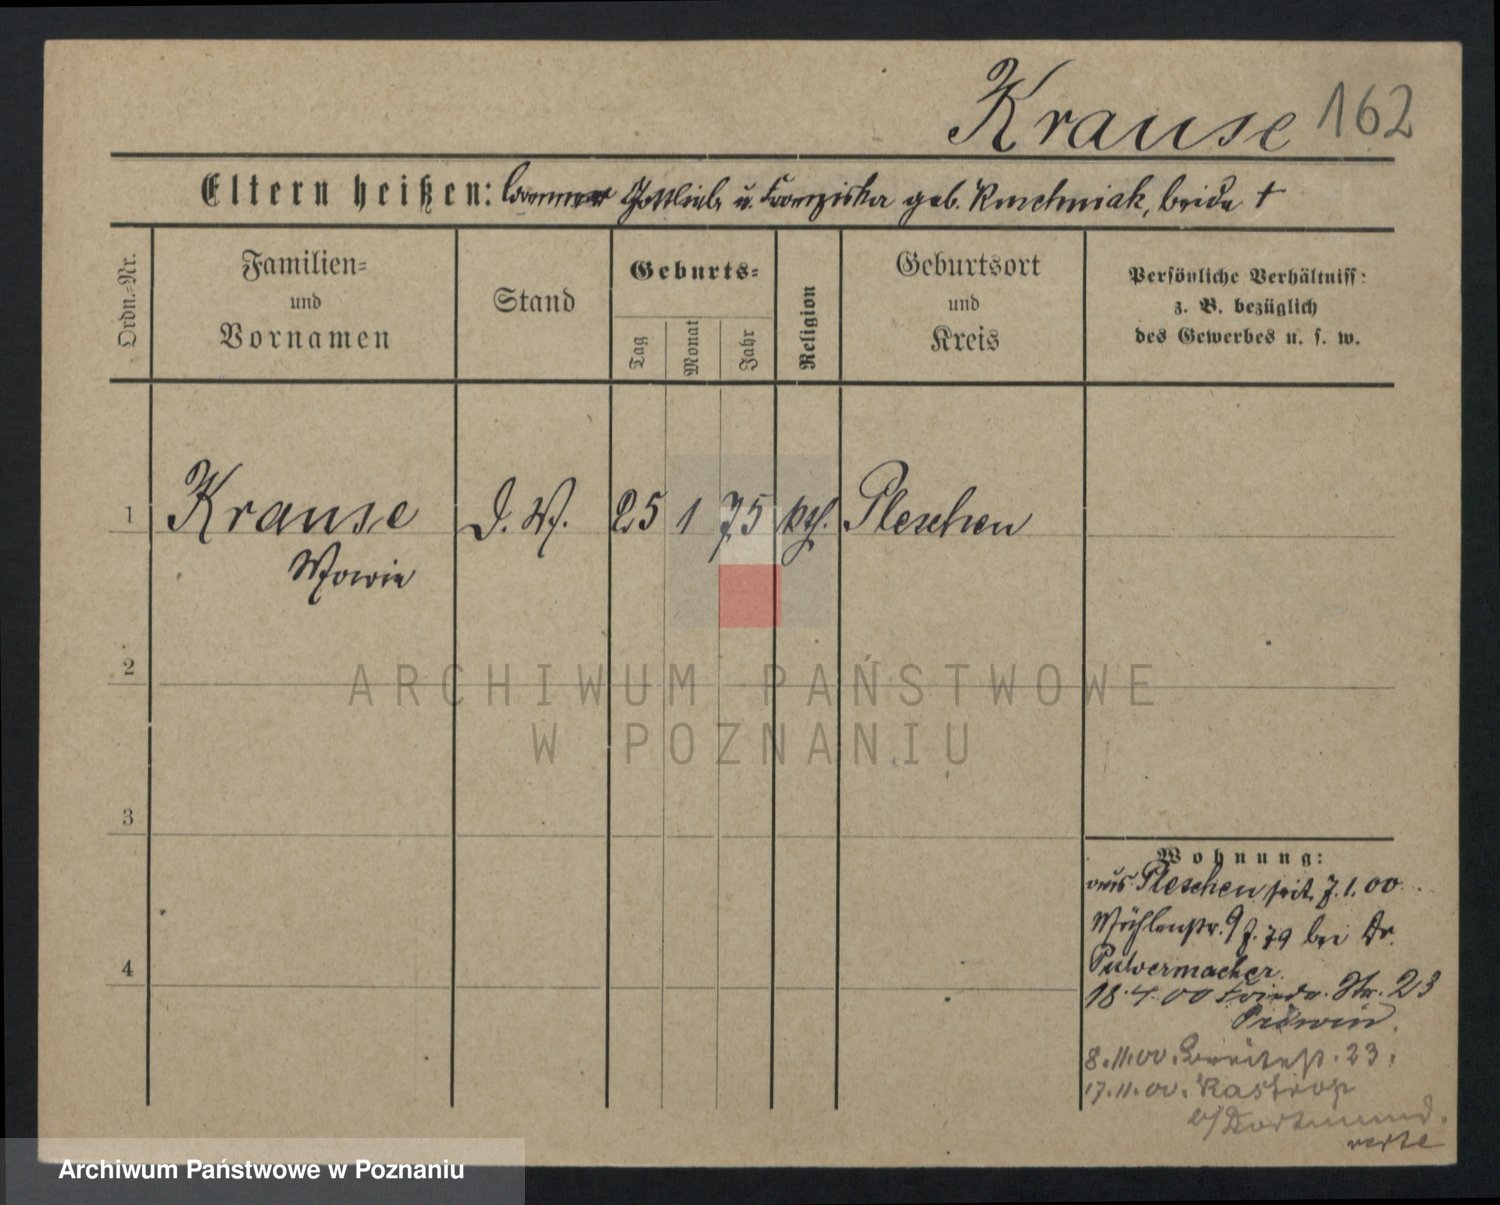 Krause 162
Eltern heißen: Gottlieb u. Franziska geb. beide †
Ordn.-Nr.
Familien-
und
Vornamen
Stand
Geburts-
Tag
Monat
Jahr
Religion
Geburtsort
und
Kreis
Persönliche Verhältniss-
z. B. bezüglich
des Gewerbes u. s. w.
1 Krause D. M. 25 1 75 kth. Pleschen
Marie
2
3
4
Wohnung:
aus Pleschen seit 7.1.00
Mühlenstr. 9 bei Dr.
Pulvermacher.
18.4.00 Friedr. Str. 23
8.11.00. Breitestr. 23.
17.11.00. Rastrop
b/Dortmund.
verte
ARCHIWUM PAŃSTWOWE
W POZNANIU
Archiwum Państwowe w Poznaniu